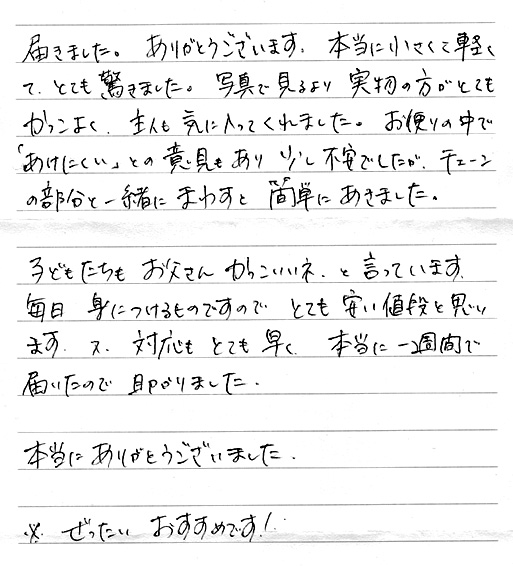 届きました。ありがとうございます。本当に小さくて軽く
て、とても驚きました。写真で見るより実物の方がとても
かっこよく、主人も気に入ってくれました。お便りの中で
「あけにくい」との意見もあり少し不安でしたが、チェーン
の部分と一緒にまわすと簡単にあきました。
子どもたちもお父さんかっこいいネ、と言っています。
毎日身につけるものですのでとても安い値段と思い
ます。又、対応もとても早く、本当に一週間で
届いたので助かりました。
本当にありがとうございました。
※ぜったいおすすめです!